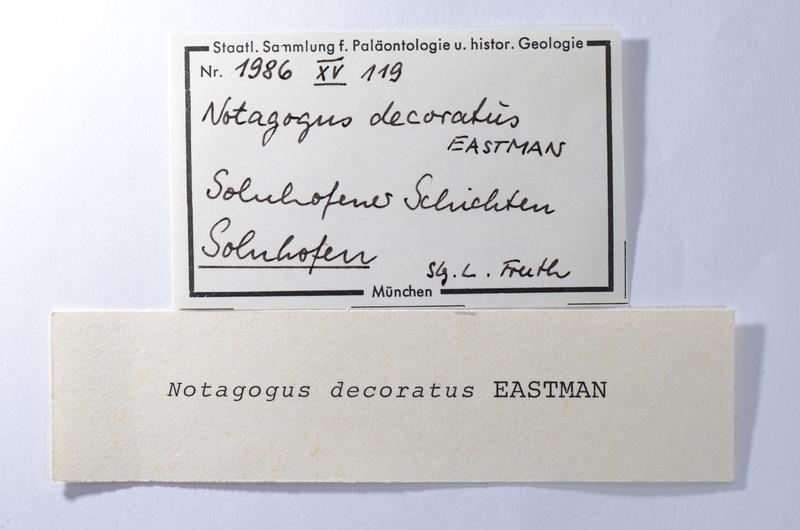 Staatl. Sammlung f. Paläontologie u. histor. Geologie
Nr. 1986 XV 119
Notagogus decoratus
EASTMAN
Solnhofener Schichten
Solnhofen
Slg. L. Freeth
München
Notagogus decoratus EASTMAN